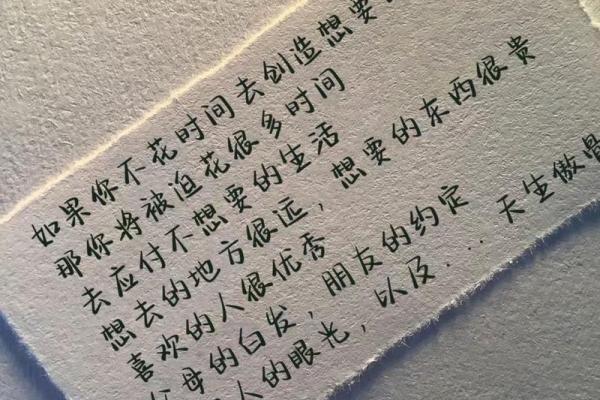 如果你不花时间去创造想要
那你将被迫花很多时间
去应付不想要的生活
想去的地方很远，想要的东西很贵
喜欢的人很优秀
母的白发，朋友的约定
人的眼光，以及...天生傲骨